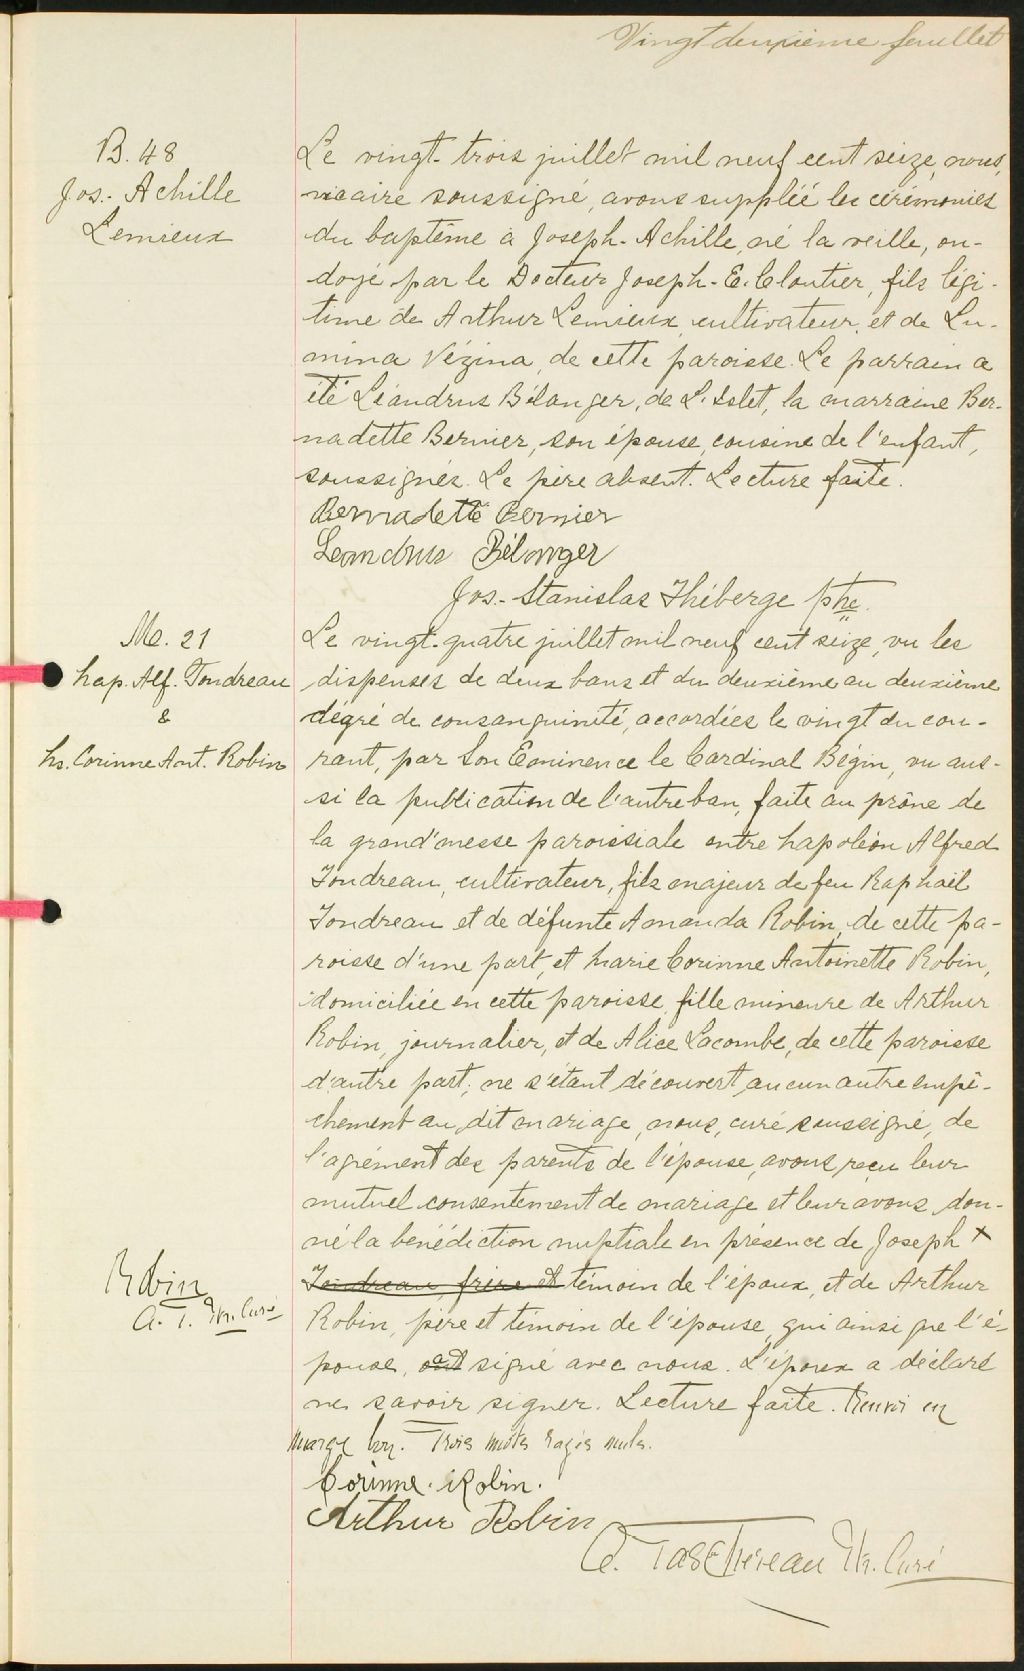 Vingt deuxième feuillet
B. 48
Jos.- Achille
Lemieux
Le vingt-trois juillet mil neuf cent seize, nous,
vicaire soussigné, avons suppléé les cérémonies
du baptême à Joseph-Achille, né la veille, on-
doyé par le Docteur Joseph-E. Cloutier, fils légi-
time de Arthur Lemieux, cultivateur, et de Lu-
mina Vézina, de cette paroisse. Le parrain a
été Léandrus Bélanger, de L'Islet, la marraine Ber-
nadette Bernier, son épouse, cousine de l'enfant,
soussignés. Le père absent. Lecture faite.
Bernadette Bernier
Leandrus Bélanger
Jos.- Stanislas Théberge ptre.
M. 21
Nap. Alf. Tondreau
&
M. Corinne Ant. Robin
Le vingt-quatre juillet mil neuf cent seize, vu les
dispenses de deux bans et du deuxième au deuxième
dégré de consanguinité, accordées le vingt du cou-
rant, par Son Eminence le Cardinal Bégin, vu aus-
si la publication de l'autre ban, faite au prône de
la grand'messe paroissiale entre Napoléon Alfred
Tondreau, cultivateur, fils majeur de feu Raphaël
Tondreau et de défunte Amanda Robin, de cette pa-
roisse d'une part, et Marie Corinne Antoinette Robin,
domiciliée en cette paroisse, fille mineure de Arthur
Robin, journalier, et de Alice Lacombe, de cette paroisse
d'autre part; ne s'étant découvert aucun autre empê-
chement au dit mariage, nous, curé soussigné, de
l'agrément des parents de l'épouse, avons reçu leur
mutuel consentement de mariage et leur avons don-
né la bénédiction nuptiale en présence de Joseph x
Robin
A. T. Ptr. Curé
Tondreau frère et témoin de l'époux, et de Arthur
Robin, père et témoin de l'épouse, qui ainsi que l'é-
pouse, ont signé avec nous. L'époux a déclaré
ne savoir signer. Lecture faite. Renvoi en
marge bon. Trois mots rayés nuls.
Corinne. Robin.
Arthur Robin
A. Taschereau Ptr. Curé